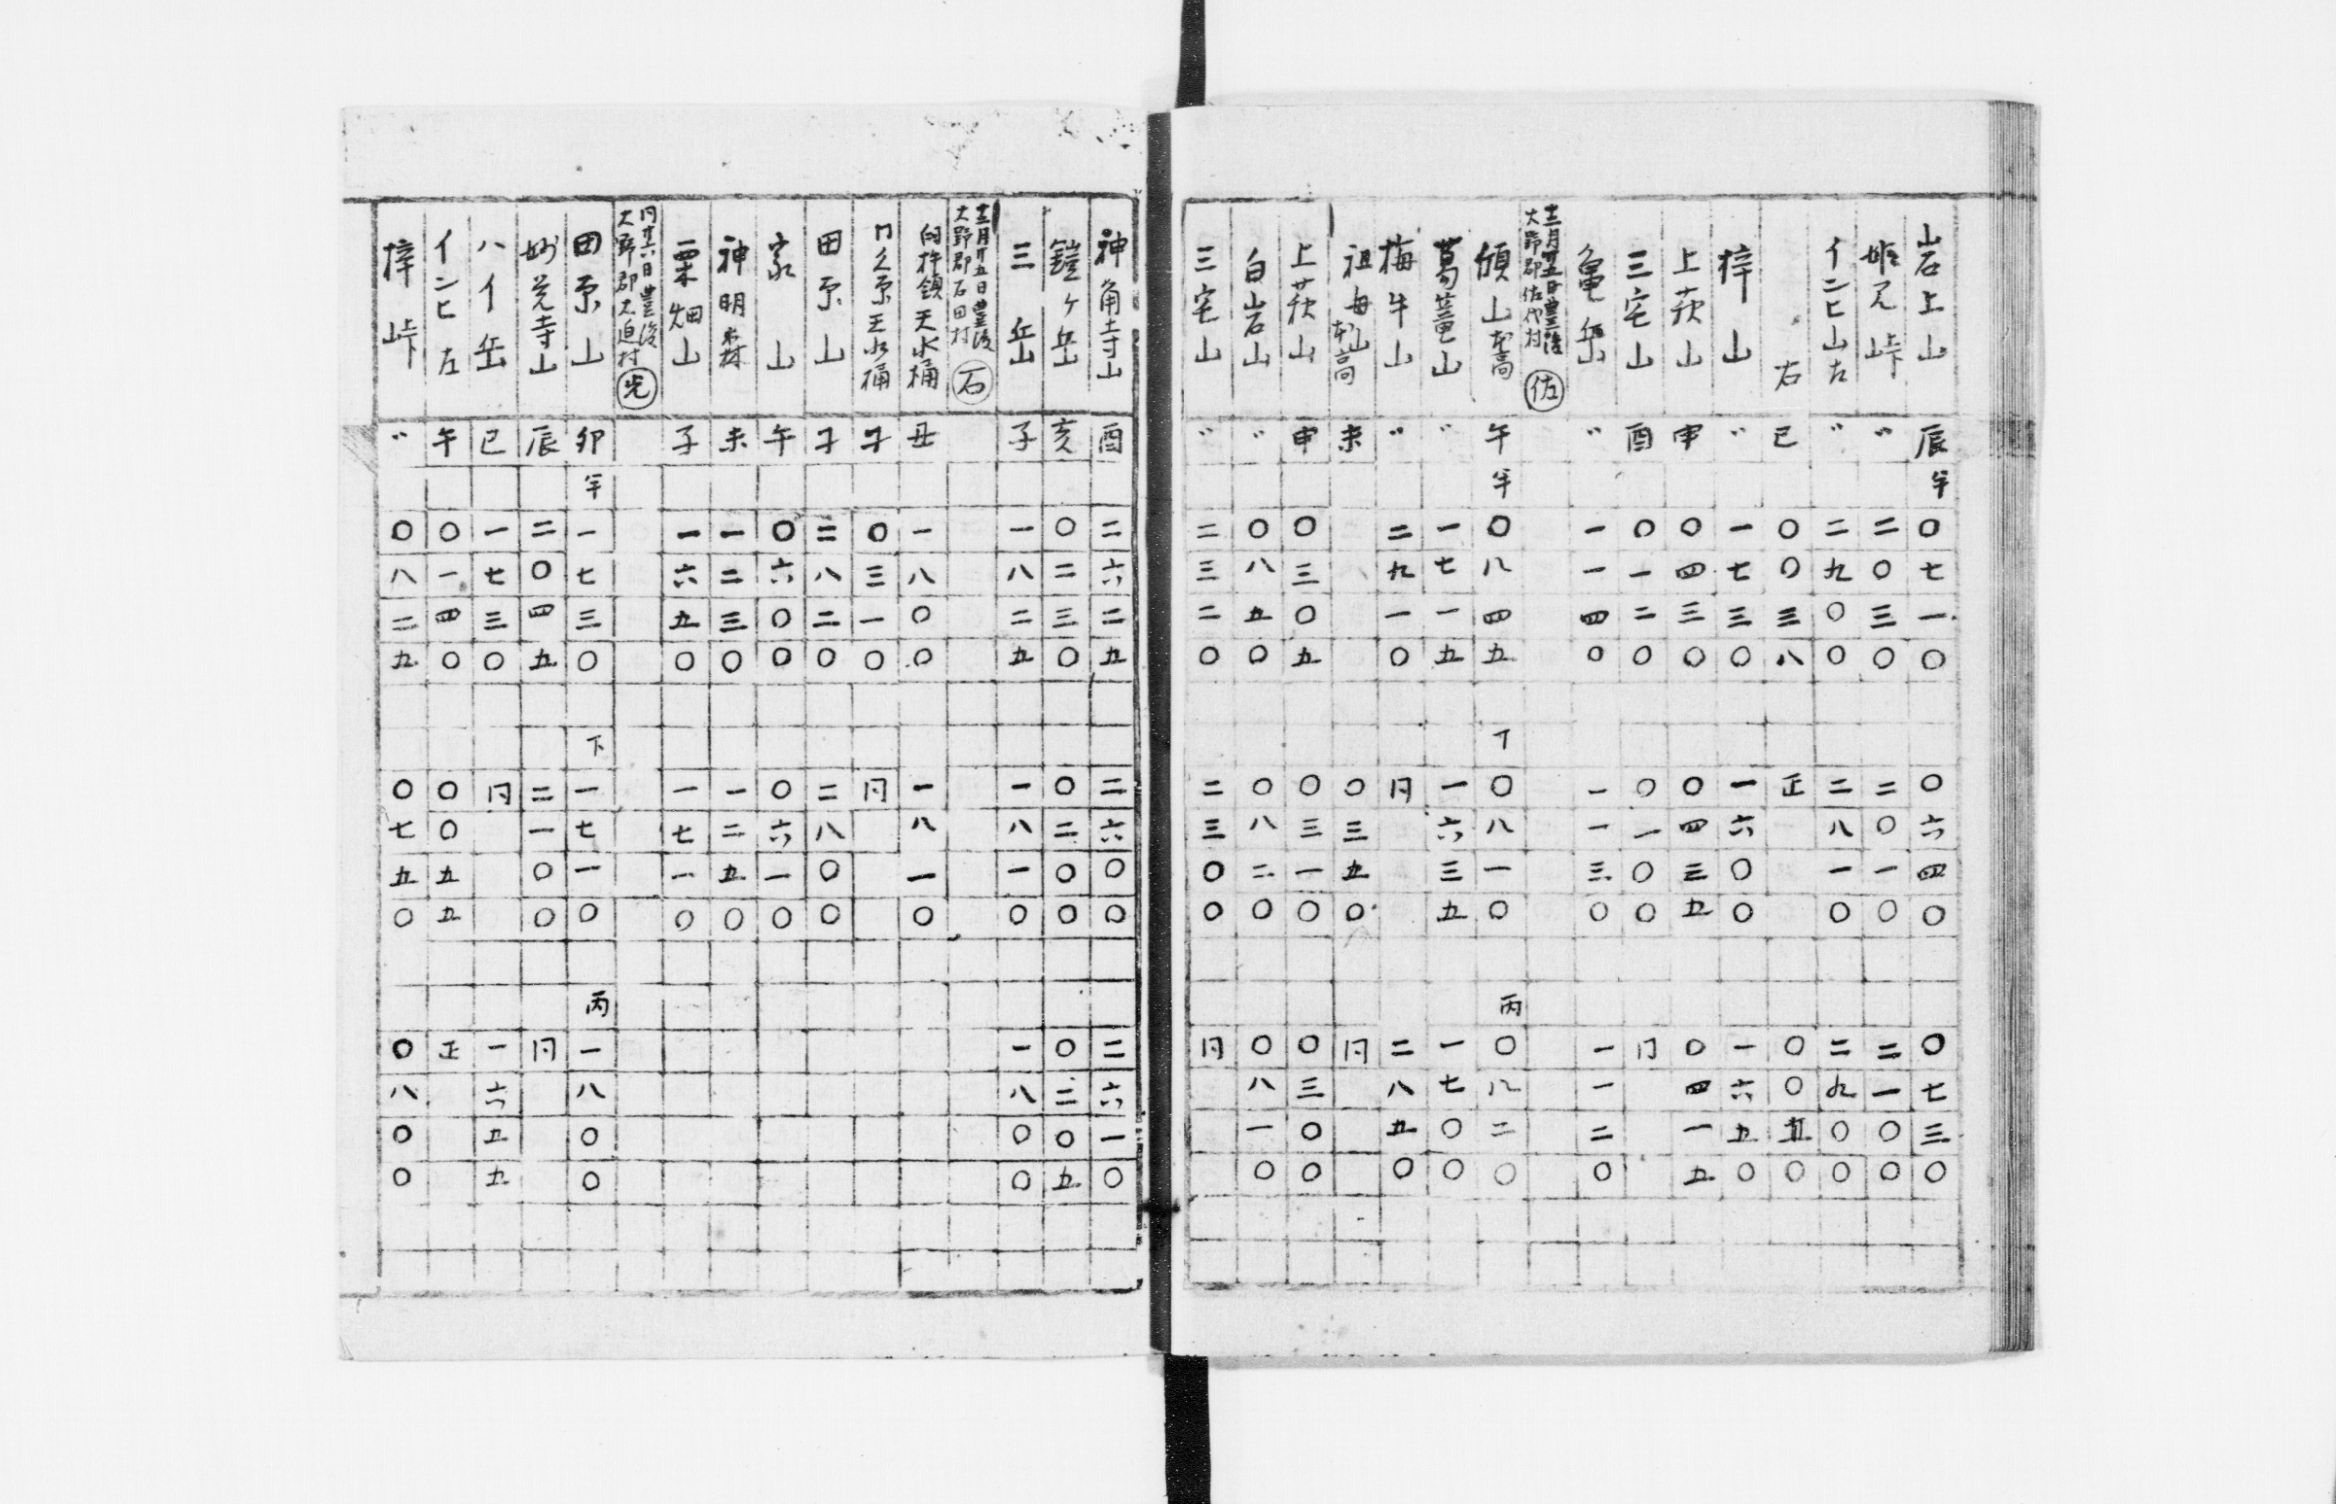 岩上山 辰 半 〇七一〇 〇六四〇 〇七三〇
峠 〃 二〇三〇 二〇一〇 二一〇〇
イニヒ山左 〃 二九〇〇 二八一〇 二九〇〇
右 巳 〇〇三八 正 〇〇五〇
梓山 〃 一七三〇 一六〇〇 一六五〇
上荻山 申 〇四三〇 〇四三五 〇四一五
三宅山 酉 〇一二〇 〇一〇〇 同
亀岳 〃 一一四〇 一一三〇 一一二〇
十二月廿五日豊後大野郡佐代村 佐
傾山 午 半 〇八四五 下 〇八一〇 丙 〇八二〇
葛葉山 〃 一七一五 一六三五 一七〇〇
梅牛山 〃 二九一〇 同 二八五〇
祖母山 未 〇三五〇 同
上荻山 申 〇三〇五 〇三一〇 〇三〇〇
白岩山 〃 〇八五〇 〇八二〇 〇八一〇
三宅山 〃 二三二〇 二三〇〇 同
神角寺山 酉 二六二五 二六〇〇 二六一〇
鎧ヶ岳 亥 〇二三〇 〇二〇〇 〇二〇五
三岳 子 一八二五 一八一〇 一八〇〇
十二月廿五日豊後大野郡石田村 石
臼杵領天水桶 丑 一八〇〇 一八一〇
同久原王水桶 子 〇三一〇 同
田原山 子 二八二〇 二八〇〇
家山 午 〇六〇〇 〇六一〇
神明森 未 一二三〇 一二五〇
栗畑山 子 一六五〇 一七一〇
同廿六日豊後大野郡大迫村 光
田原山 卯 半 一七三〇 下 一七一〇 丙 一八〇〇
妙覚寺山 辰 二〇四五 二一〇〇 同
ハイ岳 巳 一七三〇 同 一六五五
イニヒ左 午 〇一四〇 〇〇五五 正
梓峠 〃 〇八二九 〇七五〇 〇八〇〇